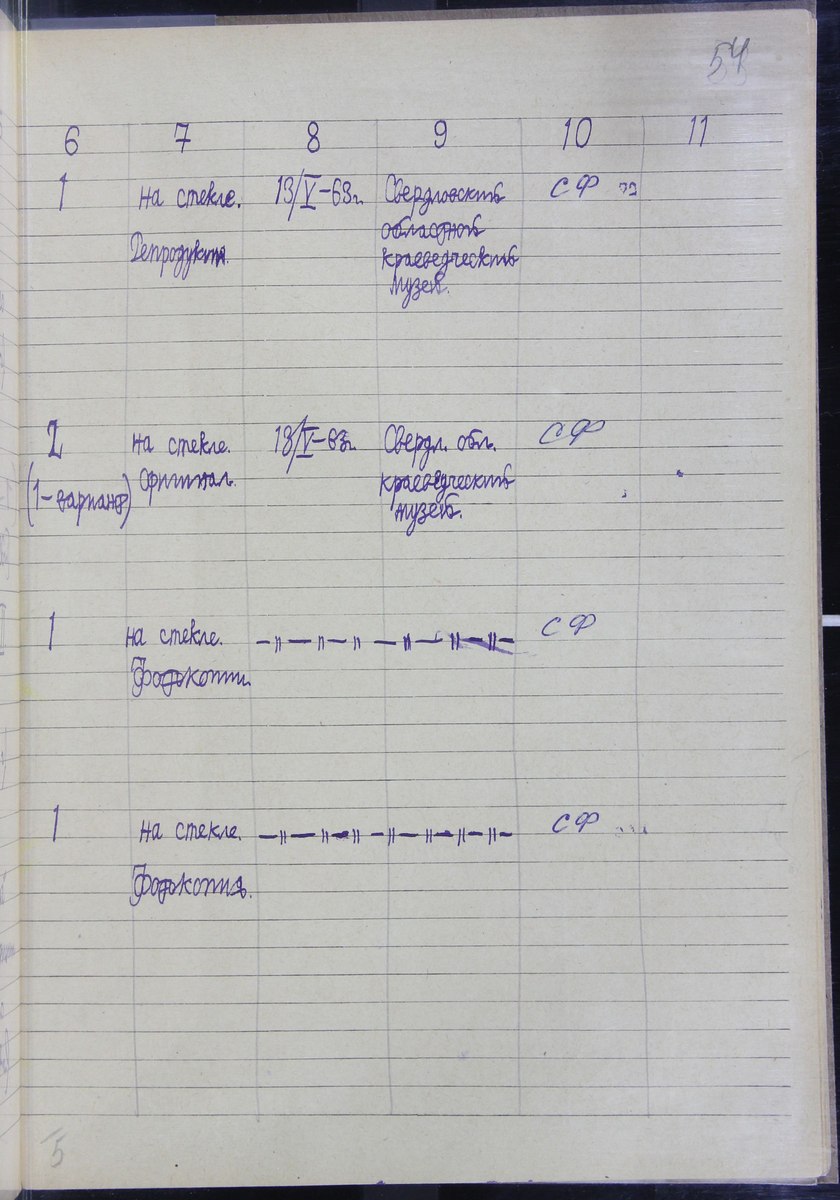 54
6 7 8 9 10 11
1 на стекле. 13/V-63г. Свердловский СФ
областной
Репродукция. краеведческий
музей.
2 на стекле. 13/V-63г. Свердл. обл. СФ
(1-вариант) Оригинал. краеведческий
музей.
1 на стекле. –〃–〃–〃––〃–〃–〃– СФ
Фотокопии.
1 на стекле. –〃–〃–〃––〃–〃–〃–〃– СФ
Фотокопия.
5